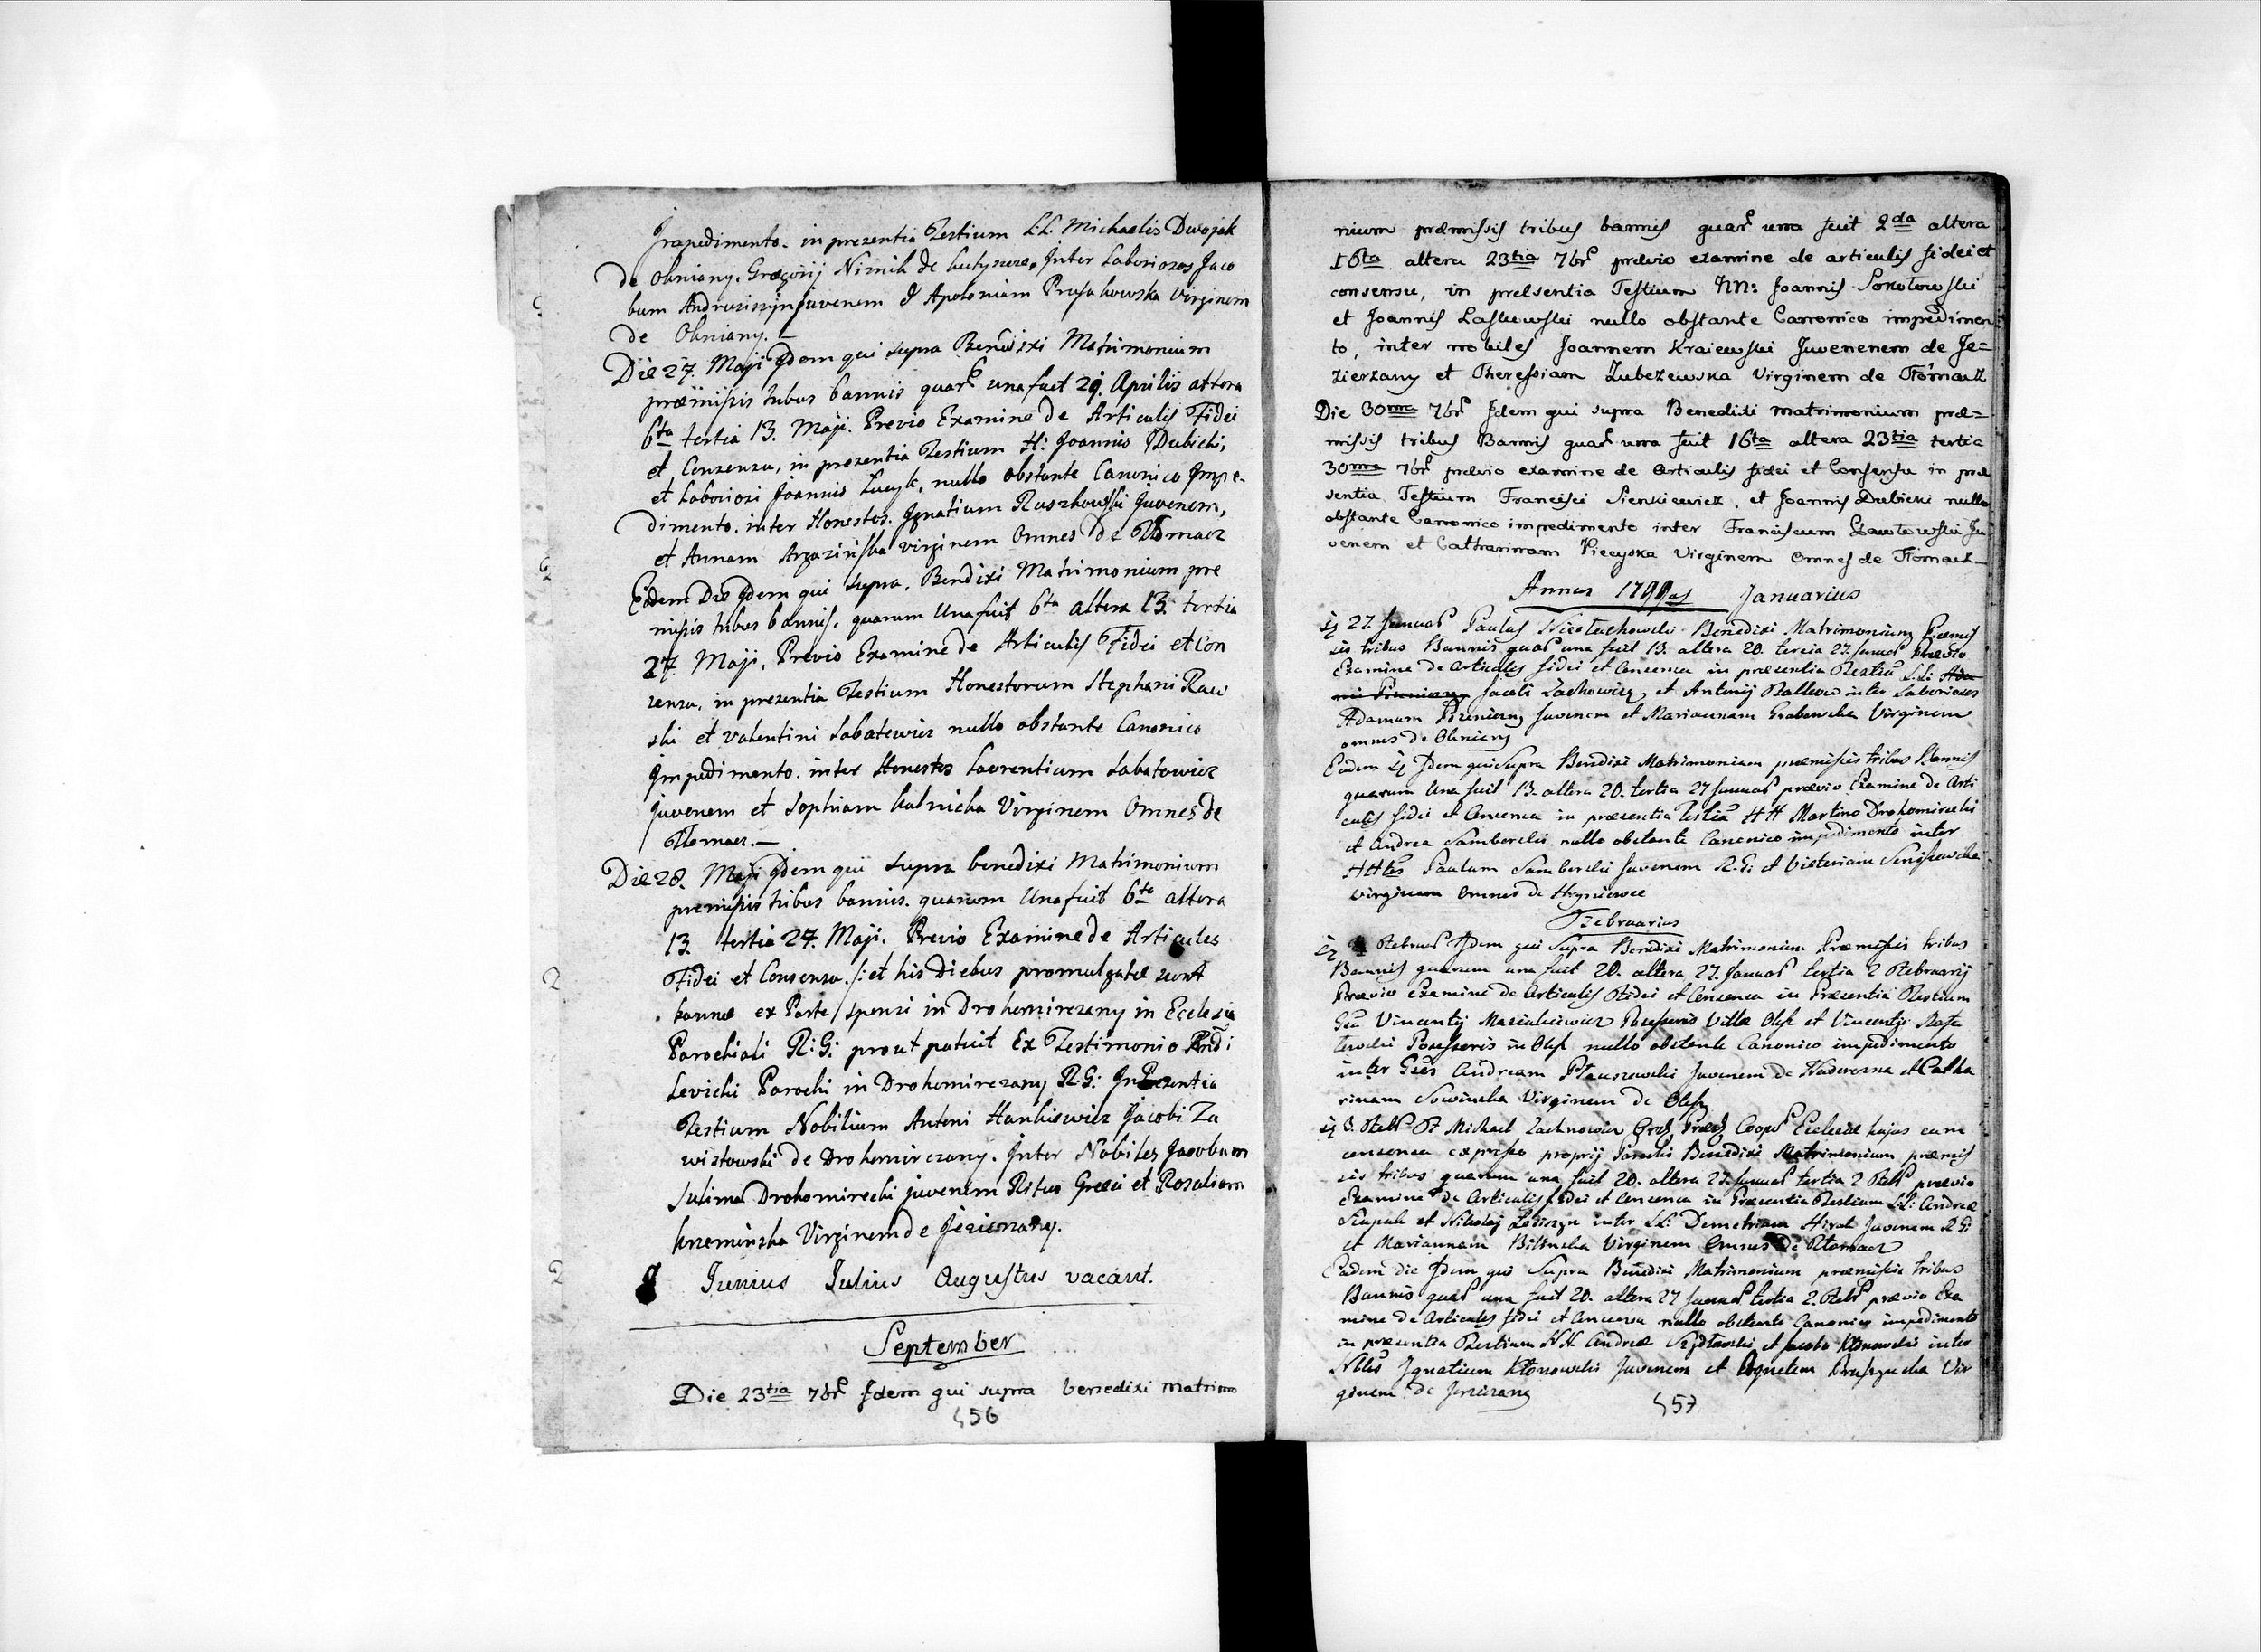 Impedimento. in prezentia Testium L.L. Michaelis Dwojak
de Okniany. Gregorij Nirnik de kutyszcze. Inter Laboriosos Jaco
bum Andrusiszyn juvenem & Apoloniam Prusakowska Virginem
de Okniany.—
Die 27. Maji Idem qui supra Benedixi Matrimonium
præmissis tribus bannis quar̃ una fuit 29. Aprilis altera
6ta tertia 13. Maji. Previo Examine de Articulis Fidei
et Conzenzu, in prezentia Testium H: Joannis Dubicki,
et Laboriosi Joannis Lucyk, nullo obstante Canonico Impe-
dimento. inter Honestos. Ignatium Ruszkowski Juvenem,
et Annam virginem Omnes de Tłomacz
Eodem Die Idem qui supra. Bendixi Matrimonium pre
missis tribus bannis. quarum Una fuit 6ta altera 13. tertia
27. Maji. Previo Examine de Articulis Fidei et Con
zenzu, in prezentia Testium Honestorum Stephani Raw
ski et Valentini Labatewicz nullo obstante Canonico
Impedimento. inter Honestos Laurentium Labatowicz
juvenem et Sophiam kalnicka Virginem Omnes de
Tłomacz.—
Die 28. Maji Idem qui supra benedixi Matrimonium
premissis tribus bannis. quarum Una fuit 6ta altera
13. tertia 27. Maji. Previo Examine de Articules
Fidei et Consenzu /: et his Diebus promulgatæ sunt
bannæ ex Parte sponsi in Drohomirczany in Ecclesia
Parochiali R:G: prout patuit Ex Testimonio Rndi
Levicki Parochi in Drohomirczany R.G: In Prezentia
Testium Nobilium Antoni Hankiewicz Jacobi Za
wistowski de Drohomirczany. Inter Nobiles Jacobum
Sulima Drohomirecki juvenem Ritus Græci et Rosaliam
krzeminska Virginem de Jezierzany.
Junius Julius Augustus vacant.
September
Die 23tia 7br̃ Idem qui supra benedixi matrimo
456
nium præmissis tribus bannis quar̃ una fuit 2da altera
16ta altera 23tia 7br̃ prævio examine de articulis fidei et
consensu, in prelsentia Testium NN: Joannis Sokołowski
et Joannis Laskowski nullo obstante Canonico impedimen
to, inter nobiles Joannem Kraiewski Juvenenem de Je=
zierzany et Theressiam Zubczewska Virginem de Tłómacz
Die 30ma 7br̃ Idem qui supra Benedixi matrimonium præ=
missis tribus Bannis quar̃ una fuit 16ta altera 23tia tertia
30ma 7br̃ prævio examine de Articulis fidei et Consensu in præ
sentia Testium Francisci Sienkiewicz. et Joannis Dubicki nullo
obstante Canonico impedimento inter Franciscum Ju
venem et Catharinam Piecyska Virginem Omnes de Tłomacz—
Annus 1799as Januarius
27. Januar̃ Paulus Benedixi Matrimonium Præmis
sis tribus Bannis quar̃ una fuit 13. altera 20. tercia 27. Januar̃ Prævio
Examine de Articulis fidei et Consensu in præsentia Testiũ L:L:
Jacobi Zachowicz, et Antonij inter Laboriosos
Adamum Juvenem et Mariannam Grabowska Virginem
omnes de Okniany
Eadem Idem qui Supra Bendixi Matrimonium præmissis tribus Bannis
quarum Una fuit 13. altera 20. tertia 27 Januar̃ prævio Examine de Arti
culis fidei et Consensu in præsentia Testiũ HH Martino Drohomirecki
et Andrea Samborski nullo obstante Canonico impedimento inter
HHtes Paulum Samborski Juvenem R.G: et Victoriam
Virginem Omnes de Hryniowce
Februarius
Februar̃ Idem qui Supra Benedixi Matrimonium Præmissis tribus
Bannis quarum una fuit 20. altera 27. Januar̃ tertia 2 Februarij
Prævio Examine de Articulis Fidei et Consensu in Præsentia Testium
Vincentij Possessoris Villæ et Vincentij
Possessoris in nullo obstante Canonico impedimento
inter Andream Juvenem de Nadworna et Catha
rinam Sowinska Virginem de
3. Febr̃ P Michael Zachnowicz Coop̃ Ecclesiæ hujus cum
consensu expresso proprij Parochi Benedixi Matrimonium præmis
sis tribus quarum una fuit 20. altera 27. Januar̃ tertia 2 Febr̃ prævio
Examine de Articulis fidei et Consensu in Præsentia Testium L:L: Andreæ
et Nikolaj inter LL: Demetrium Juvenem R G:
et Mariannam Bilinska Virginem Omnes de Tłomacz
Eadem die Idem qui Supra Benedixi Matrimonium præmissis tribus
Bannis quar̃ una fuit 20. altera 27 Januar̃ tertia 2. Febr̃ prævio Exa
mine de Articules fidei et Consensu nullo obstante Canonico impedimento
in præsentia Testium N.N. Andreæ et Jacobi Kłonowski inter
Nbles Ignatium Kłonowski Juvenem et Agnetem Vir
ginem de Jezierzany
457